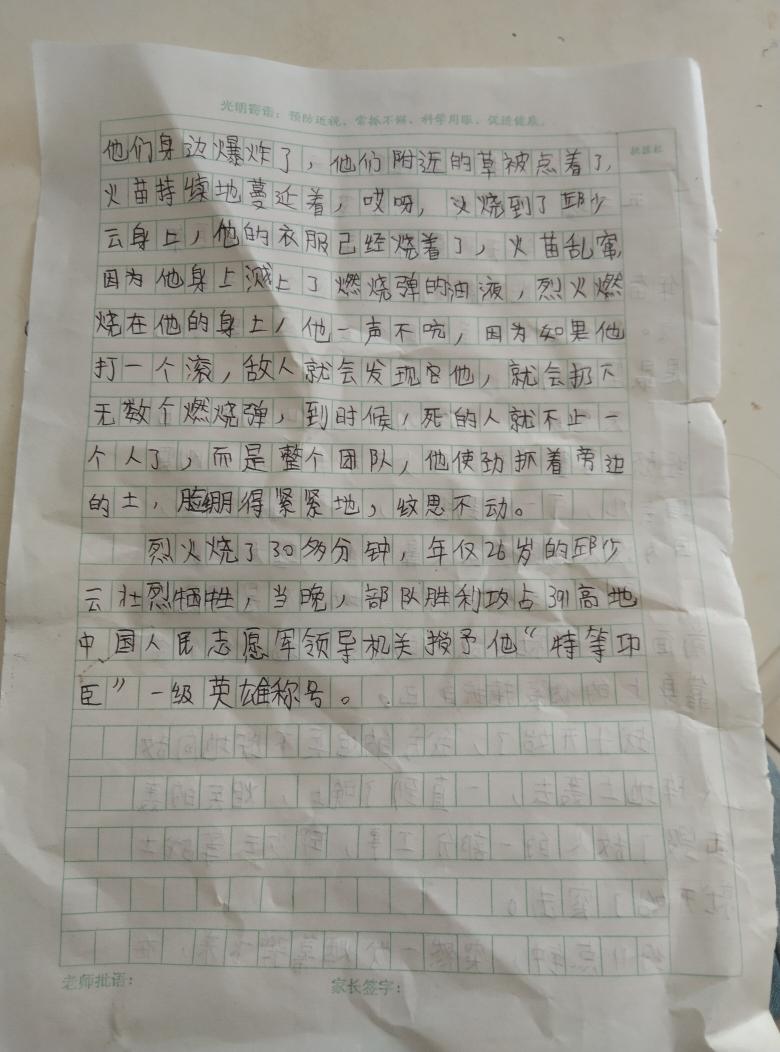 光明寄语：预防近视、常抓不懈、科学用眼、促进健康。
他们身边爆炸了，他们附近的草被点着了，
火苗持续地蔓延着，哎呀，火烧到了邱少
云身上，他的衣服已经烧着了，火苗乱窜，
因为他身上溅上了燃烧弹的油液，烈火燃
烧在他的身上，他一声不吭，因为如果他
打一个滚，敌人就会发现他，就会扔下
无数个燃烧弹，到时候，死的人就不止一
个人了，而是整个团队，他使劲抓着旁边
的土，脸绷得紧紧地，纹思不动。
烈火烧了30多分钟，年仅26岁的邱少
云壮烈牺牲，当晚，部队胜利攻占391高地
中国人民志愿军领导机关授予他“特等功
臣”一级英雄称号。
老师批语：
家长签字：